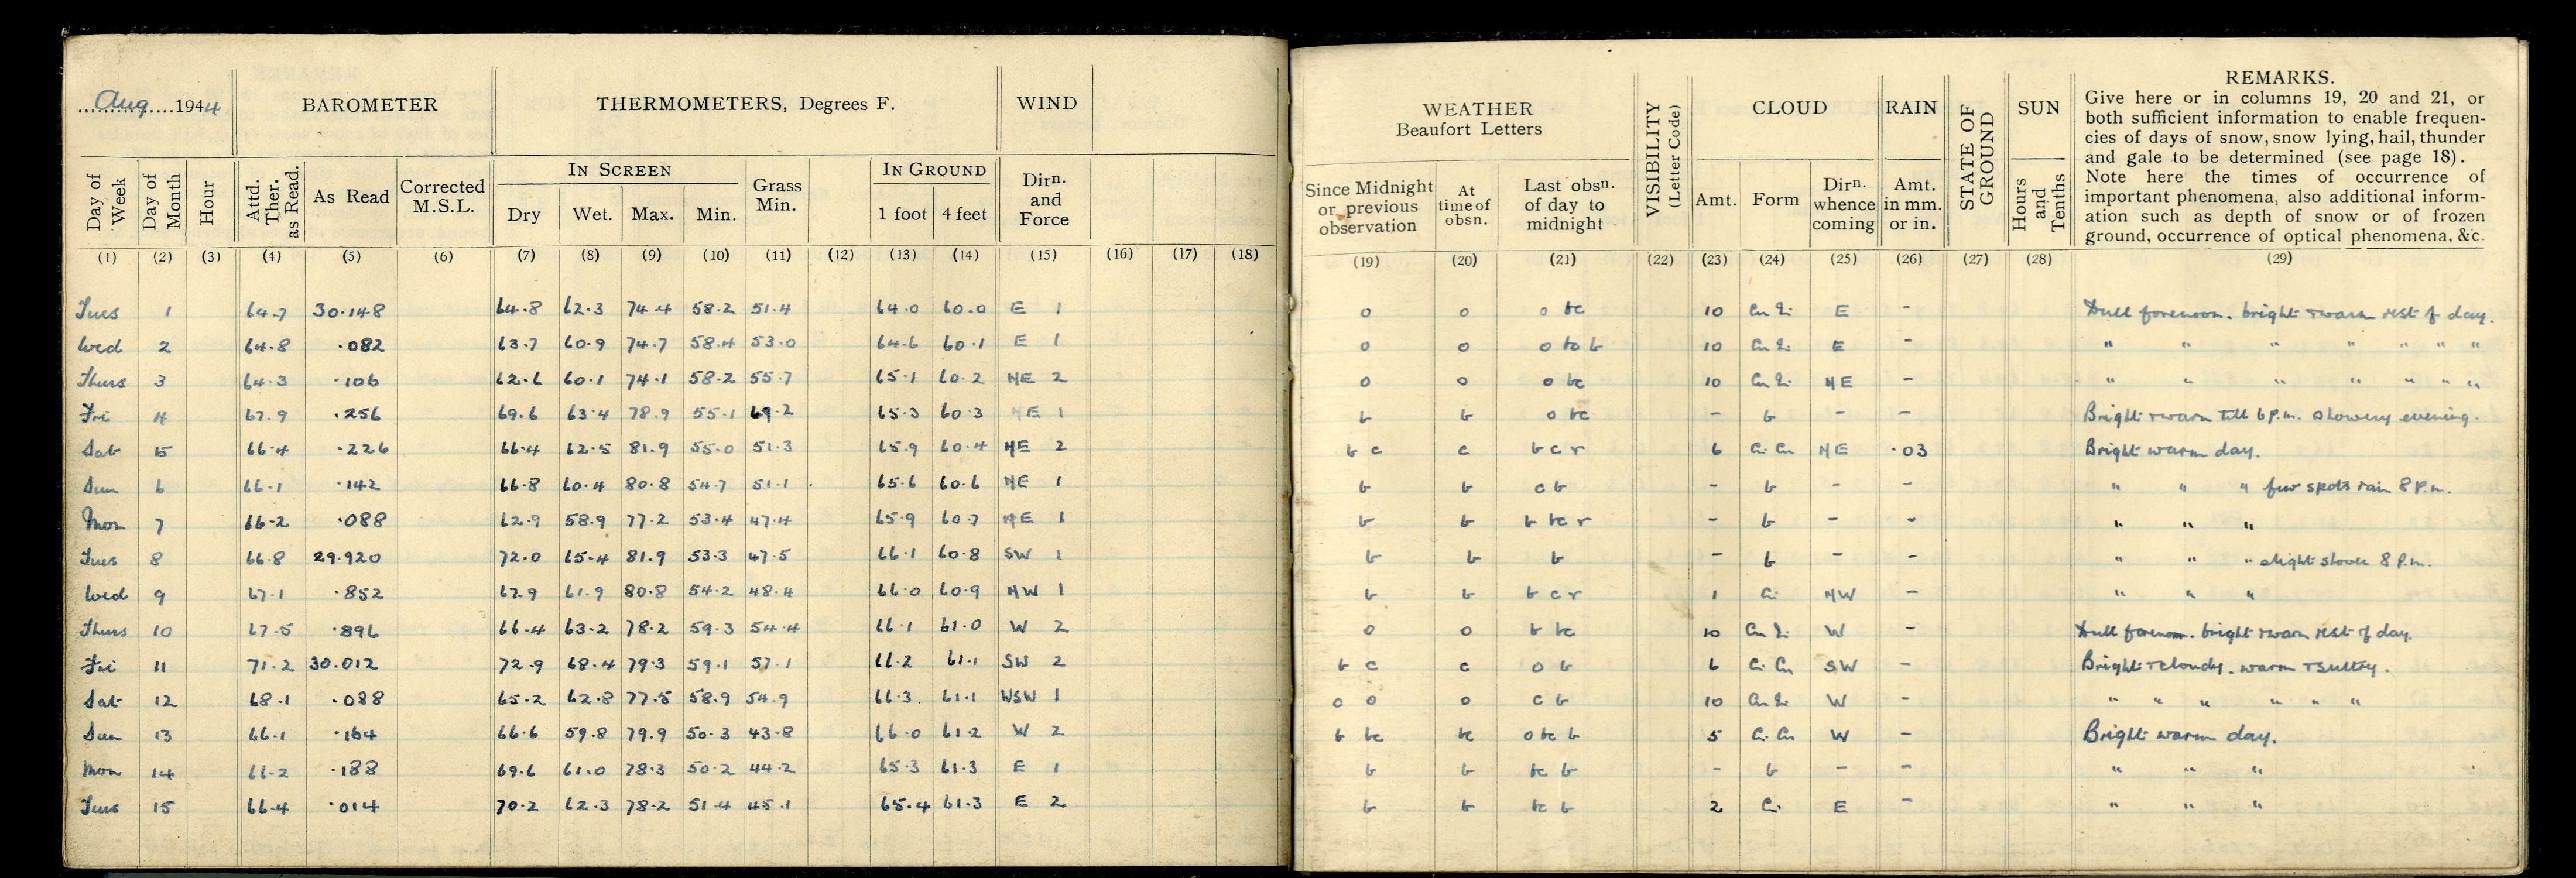 Aug 1944 BAROMETER THERMOMETERS, Degrees F. WIND
Day of Week Day of Month Hour Attd. Ther. as Read. As Read Corrected M.S.L. IN SCREEN Dry Wet. Max. Min. Grass Min. IN GROUND 1 foot 4 feet Dirn. and Force
(1) (2) (3) (4) (5) (6) (7) (8) (9) (10) (11) (12) (13) (14) (15) (16) (17) (18)
Tues 1 64.7 30.148 64.8 62.3 74.4 58.2 51.4 64.0 60.0 E 1
Wed 2 64.8 .082 63.7 60.9 74.7 58.4 53.0 64.6 60.1 E 1
Thurs 3 64.3 .106 62.6 60.1 74.1 58.2 55.7 65.1 60.2 NE 2
Fri 4 67.9 .256 69.6 63.4 78.9 55.1 49.2 65.3 60.3 NE 1
Sat 5 66.4 .226 66.4 62.5 81.9 55.0 51.3 65.9 60.4 NE 2
Sun 6 66.1 .142 66.8 60.4 80.8 54.7 51.1 65.6 60.6 NE 1
Mon 7 66.2 .088 62.9 58.9 77.2 53.4 47.4 65.9 60.7 NE 1
Tues 8 66.8 29.920 72.0 65.4 81.9 53.3 47.5 66.1 60.8 SW 1
Wed 9 67.1 .852 67.9 61.9 80.8 54.2 48.4 66.0 60.9 NW 1
Thurs 10 67.5 .896 66.4 63.2 78.2 59.3 54.4 66.1 61.0 W 2
Fri 11 71.2 30.012 72.9 68.4 79.3 59.1 57.1 66.2 61.1 SW 2
Sat 12 68.1 .088 65.2 62.8 77.5 58.9 54.9 66.3 61.1 WSW 1
Sun 13 66.1 .164 66.6 59.8 79.9 50.3 43.8 66.0 61.2 W 2
Mon 14 66.2 .188 69.6 61.0 78.3 50.2 44.2 65.3 61.3 E 1
Tues 15 66.4 .014 70.2 62.3 78.2 51.4 45.1 65.4 61.3 E 2
WEATHER Beaufort Letters VISIBILITY (Letter Code) CLOUD RAIN STATE OF GROUND SUN
Since Midnight or previous observation At time of obsn. Last obsn. of day to midnight Amt. Form Dirn. whence coming Amt. in mm. or in. Hours and Tenths
REMARKS.
Give here or in columns 19, 20 and 21, or
both sufficient information to enable frequen-
cies of days of snow, snow lying, hail, thunder
and gale to be determined (see page 18).
Note here the times of occurrence of
important phenomena, also additional inform-
ation such as depth of snow or of frozen
ground, occurrence of optical phenomena, &c.
(19) (20) (21) (22) (23) (24) (25) (26) (27) (28) (29)
o o o bc 10 Cu E - Dull forenoon. bright + warm rest of day.
o o o bc b 10 Cu E - " " " " " " "
o o o bc 10 Cu NE - " " " " " " "
b b o bc - b - - Bright + warm till 6 P.m. showery evening.
b c c b c r 6 Ci Cu NE .03 Bright warm day.
b b c b - b - - " " " few spots rain 8 P.m.
b b b bc r - b - - " " "
b b b - b - - " " " slight shower 8 P.m.
b b b c r 1 Ci NW - " " "
o o b bc 10 Cu W - Dull forenoon. bright + warm rest of day.
b c c o b 6 Ci Cu SW - Bright + cloudy. warm + sultry.
o o o c b 10 Cu W - " " " " " "
b bc bc o bc b 5 Ci Cu W - Bright warm day.
b b bc b - b - - " " "
b b bc b 2 Ci E - " " "